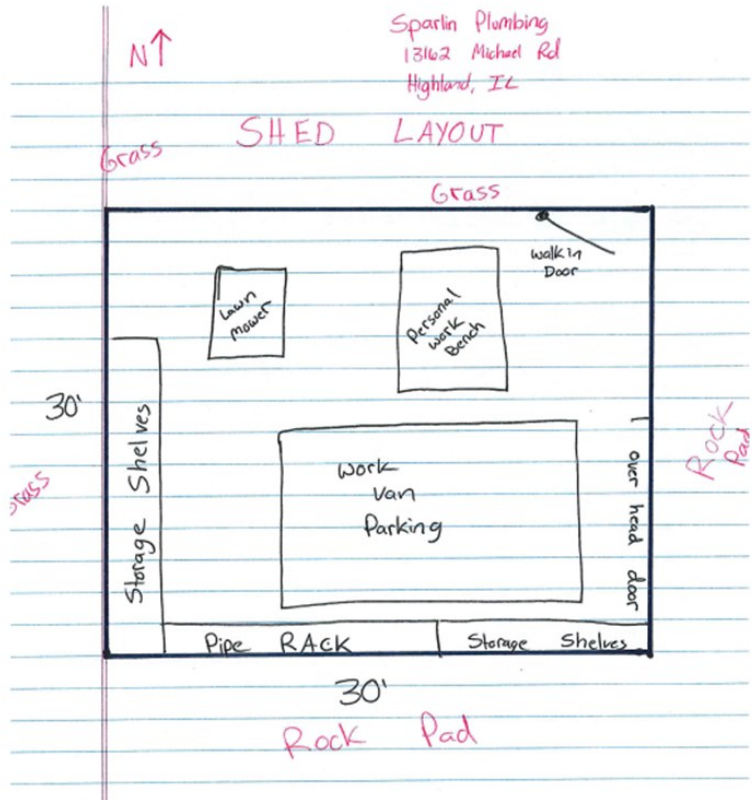 N↑
Sparlin Plumbing
13162 Michael Rd
Highland, IL
SHED LAYOUT
Grass
Grass
Walk in
Door
Lawn
Mower
Personal
Work
Bench
30'
Storage Shelves
Work
Van
Parking
over head door
Rock
Pad
Grass
Pipe RACK
Storage Shelves
30'
Rock Pad